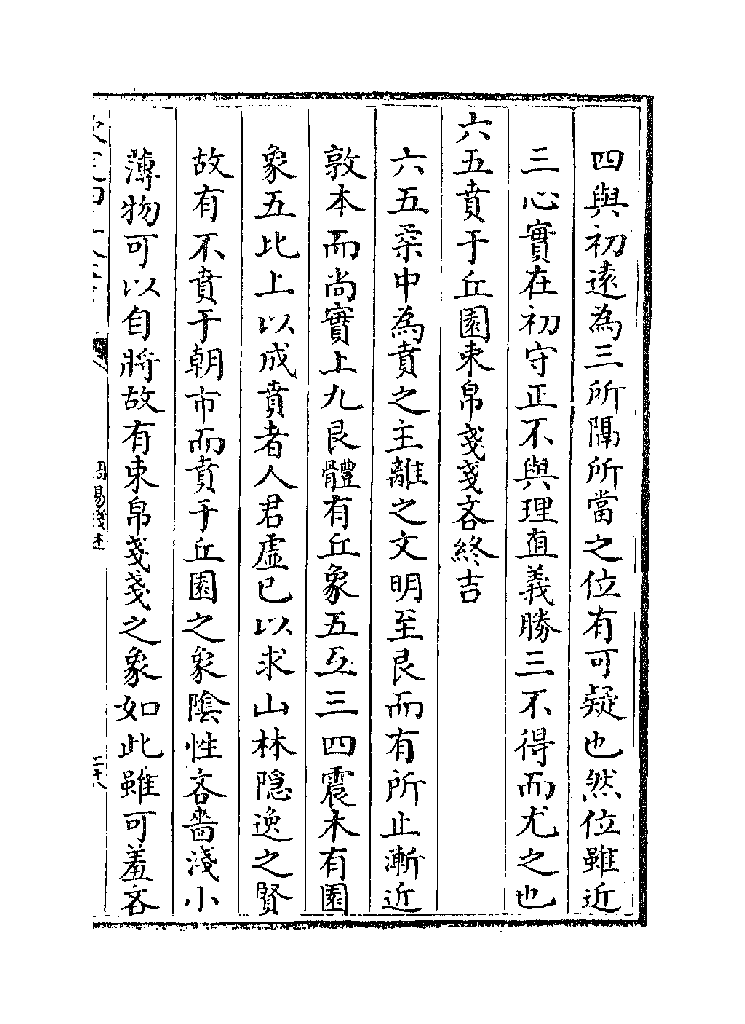 四與初逺為三所隔所當之位有可疑也然位雖近
三心實在初守正不與理直義勝三不得而尤之也
六五賁于丘園束帛戔戔吝終吉
六五柔中為賁之主離之文明至艮而有所止漸近
敦本而尚實上九艮體有丘象五互三四震木有園
象五比上以成賁者人君虛已以求山林隠逸之賢
故有不賁于朝市而賁于丘園之象陰性吝嗇淺小
薄物可以自將故有束帛戔戔之象如此雖可羞吝
周易淺述